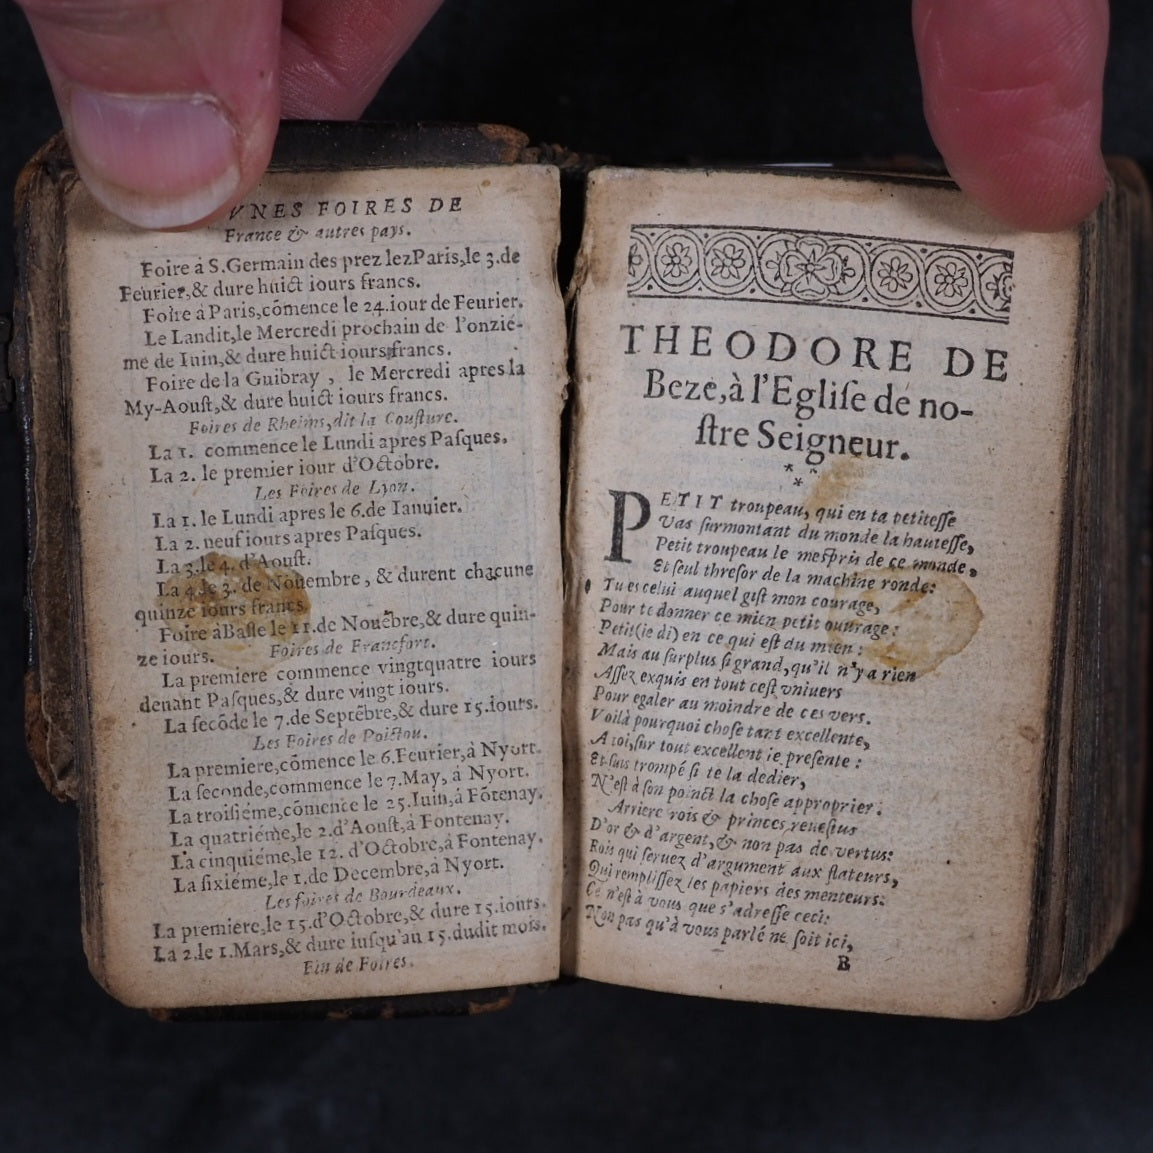 VNES FOIRES DE
France & autres pays.
Foire à S.Germain des prez lez Paris,le 3.de
Feurier,& dure huict iours francs.
Foire à Paris,cōmence le 24.iour de Feurier.
Le Landit,le Mercredi prochain de l'onzié-
me de Iuin,& dure huict iours francs.
Foire de la Guibray , le Mercredi apres la
My-Aouſt,& dure huict iours francs.
Foires de Rheims,dit la Couſture.
La 1. commence le Lundi apres Paſques.
La 2. le premier iour d'Octobre.
Les Foires de Lyon.
La 1. le Lundi apres le 6.de Ianuier.
La 2. neuf iours apres Paſques.
La 3.le 4. d'Aouſt.
La 4.le 3. de Nouembre , & durent chacune
quinze iours francs.
Foire à Baſle le 11.de Nouēbre,& dure quin-
ze iours. Foires de Francfort.
La premiere commence vingtquatre iours
deuant Paſques,& dure vingt iours.
La ſecōde le 7.de Septēbre,& dure 15.iours.
Les Foires de Poictou.
La premiere,cōmence le 6.Feurier,à Nyort.
La ſeconde,commence le 7.May, à Nyort.
La troiſiéme,cōmence le 25.Iuin,à Fōtenay.
La quatriéme,le 2.d'Aouſt,à Fontenay.
La cinquiéme,le 12. d'Octobre,à Fontenay.
La ſixiéme,le 1.de Decembre,à Nyort.
Les foires de Bourdeaux.
La premiere,le 15.d'Octobre,& dure 15.iours.
La 2.le 1.Mars,& dure iuſqu'au 15.dudit mois.
Fin de Foires.
THEODORE DE
Beze,à l'Egliſe de no-
ſtre Seigneur.
PETIT troupeau, qui en ta petiteſſe
Vas ſurmontant du monde la hauteſſe,
Petit troupeau le meſpris de ce monde,
Et ſeul threſor de la machine ronde:
Tu es celui auquel giſt mon courage,
Pour te donner ce mien petit ouurage:
Petit(ie di) en ce qui eſt du mien:
Mais au ſurplus ſi grand,qu'il n'y a rien
Aſſez exquis en tout ceſt vniuers
Pour egaler au moindre de ces vers.
Voilà pourquoi choſe tant excellente,
A toi,ſur tout excellent ie preſente:
Et ſuis trompé ſi te la dedier,
N'eſt à ſon poinct la choſe approprier:
Arriere rois & princes reueſtus
D'or & d'argent,& non pas de vertus:
Rois qui ſeruez d'argument aux flateurs,
Qui rempliſſez les papiers des menteurs:
Ce n'eſt à vous que s'adreſſe ceci:
Non pas qu'à vous parlé ne ſoit ici,
B